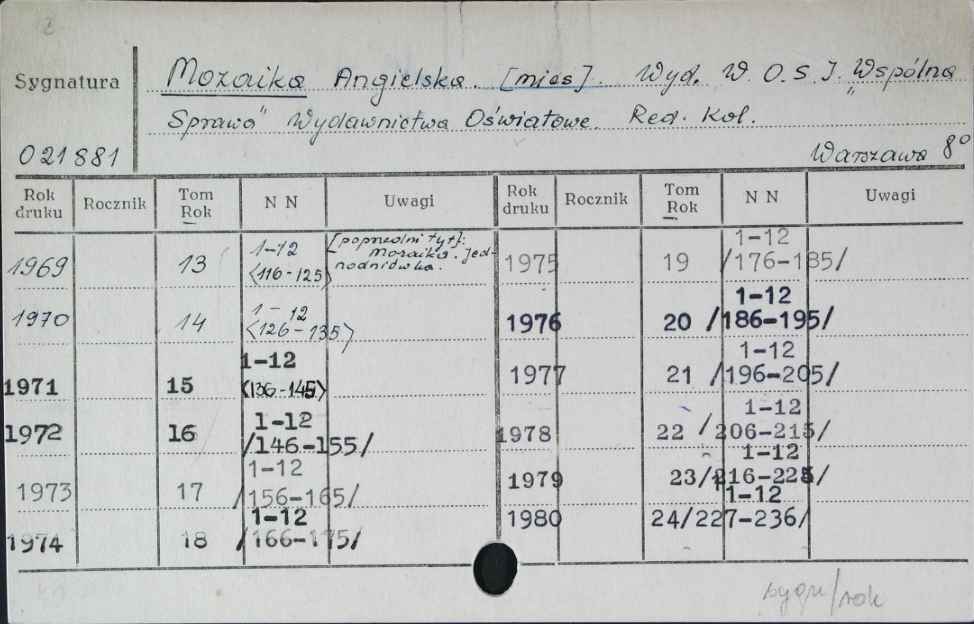 Sygnatura
Mozaika Angielska. [mies]. Wyd. W. O. S. J. „Wspólna
Sprawa" Wydawnictwa Oświatowe. Red. Kol.
021881
Warszawa 8°
Rok druku Rocznik Tom Rok N N Uwagi Rok druku Rocznik Tom Rok N N Uwagi
1969 13 1-12 <116-125> [poprzedni tyt]: Mozaika. jednodniówka.
1970 14 1-12 <126-135>
1971 15 1-12 <136-145>
1972 16 1-12 /146-155/
1973 17 1-12 /156-165/
1974 18 1-12 /166-175/
1975 19 1-12 /176-185/
1976 20 1-12 /186-195/
1977 21 1-12 /196-205/
1978 22 1-12 /206-215/
1979 23 1-12 /216-225/
1980 24 1-12 /227-236/
sygn/rok